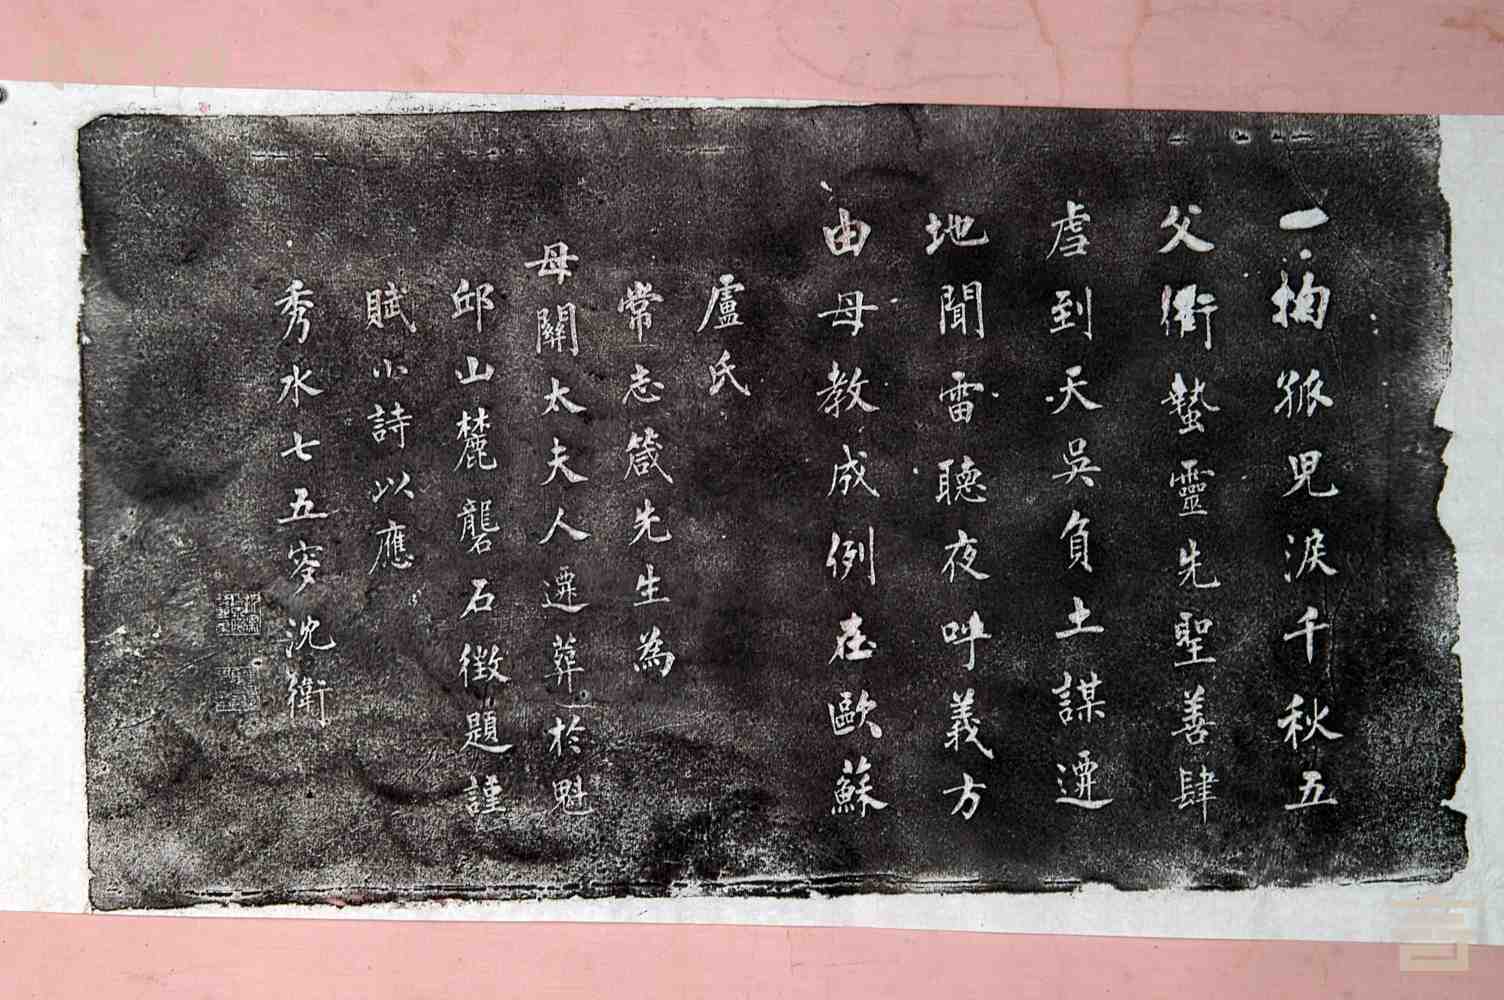 一掬孤兒淚千秋五
父衢蟄靈先聖善肆
虐到天吳負土謀遷
地聞雷聽夜呼義方
由母教成例在歐蘇
盧氏
常志箴先生為
母關太夫人遷葬於魁
邱山麓礱石徵題謹
賦小詩以應
秀水七五叟沈衛